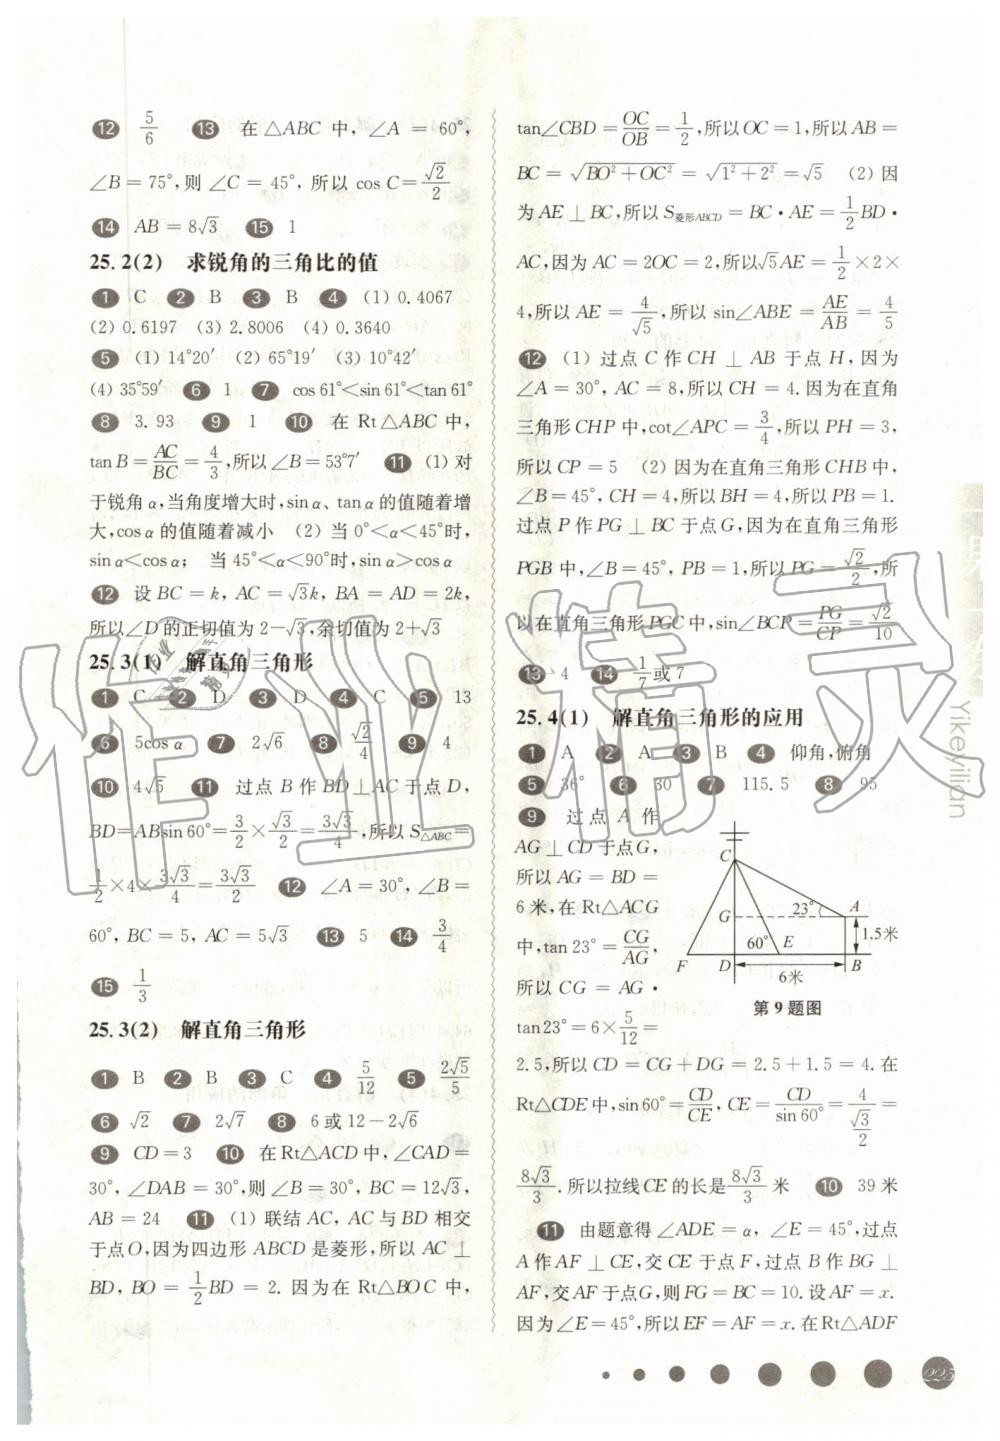 12 5/6 13 在△ABC中，∠A=60°，
∠B=75°，则∠C=45°，所以 cos C=√2/2
14 AB=8√3 15 1
25.2(2) 求锐角的三角比的值
1 C 2 B 3 B 4 (1) 0.4067
(2) 0.6197 (3) 2.8006 (4) 0.3640
5 (1) 14°20′ (2) 65°19′ (3) 10°42′
(4) 35°59′ 6 1 7 cos 61°<sin 61°<tan 61°
8 3.93 9 1 10 在Rt△ABC中，
tan B=AC/BC=4/3，所以∠B=53°7′ 11 (1) 对
于锐角α，当角度增大时，sin α、tan α的值随着增
大，cos α的值随着减小 (2) 当 0°<α<45°时，
sin α<cos α； 当 45°<α<90°时，sin α>cos α
12 设 BC=k，AC=√3k，BA=AD=2k，
所以∠D的正切值为2-√3，余切值为2+√3
25.3(1) 解直角三角形
1 C 2 D 3 D 4 C 5 13
6 5cos α 7 2√6 8 √2/4 9 4
10 4√5 11 过点B作BD⊥AC于点D，
BD=ABsin 60°=3/2×√3/2=3√3/4，所以S△ABC=
1/2×4×3√3/4=3√3/2 12 ∠A=30°，∠B=
60°，BC=5，AC=5√3 13 5 14 3/4
15 1/3
25.3(2) 解直角三角形
1 B 2 B 3 C 4 5/12 5 2√5/5
6 √2 7 2√7 8 6或12-2√6
9 CD=3 10 在Rt△ACD中，∠CAD=
30°，∠DAB=30°，则∠B=30°，BC=12√3，
AB=24 11 (1) 联结AC，AC与BD相交
于点O，因为四边形ABCD是菱形，所以AC⊥
BD，BO=1/2BD=2. 因为在Rt△BOC中，
tan∠CBD=OC/OB=1/2，所以OC=1，所以AB=
BC=√(BO²+OC²)=√(1²+2²)=√5 (2) 因
为AE⊥BC，所以S菱形ABCD=BC·AE=1/2BD·
AC，因为AC=2OC=2，所以√5AE=1/2×2×
4，所以AE=4/√5，所以sin∠ABE=AE/AB=4/5
12 (1) 过点C作CH⊥AB于点H，因为
∠A=30°，AC=8，所以CH=4. 因为在直角
三角形CHP中，cot∠APC=3/4，所以PH=3，
所以CP=5 (2) 因为在直角三角形CHB中，
∠B=45°，CH=4，所以BH=4，所以PB=1.
过点P作PG⊥BC于点G，因为在直角三角形
PGB中，∠B=45°，PB=1，所以PG=√2/2，所
以在直角三角形PGC中，sin∠BCP=PG/CP=√2/10
13 4 14 1/7或7
25.4(1) 解直角三角形的应用
1 A 2 A 3 B 4 仰角，俯角
5 36° 6 30 7 115.5 8 95
9 过点A作
AG⊥CD于点G，
所以AG=BD=
6米，在Rt△ACG
中，tan 23°=CG/AG，
所以CG=AG·
tan23°=6×5/12=
C
G 23° A
60° E 1.5米
F D B
6米
第9题图
2.5，所以CD=CG+DG=2.5+1.5=4. 在
Rt△CDE中，sin 60°=CD/CE，CE=CD/sin 60°=4/(√3/2)=
8√3/3. 所以拉线CE的长是8√3/3米 10 39米
11 由题意得∠ADE=α，∠E=45°，过点
A作AF⊥CE，交CE于点F，过点B作BG⊥
AF，交AF于点G，则FG=BC=10. 设AF=x.
因为∠E=45°，所以EF=AF=x. 在Rt△ADF
225
Yikeyilian
作业精灵